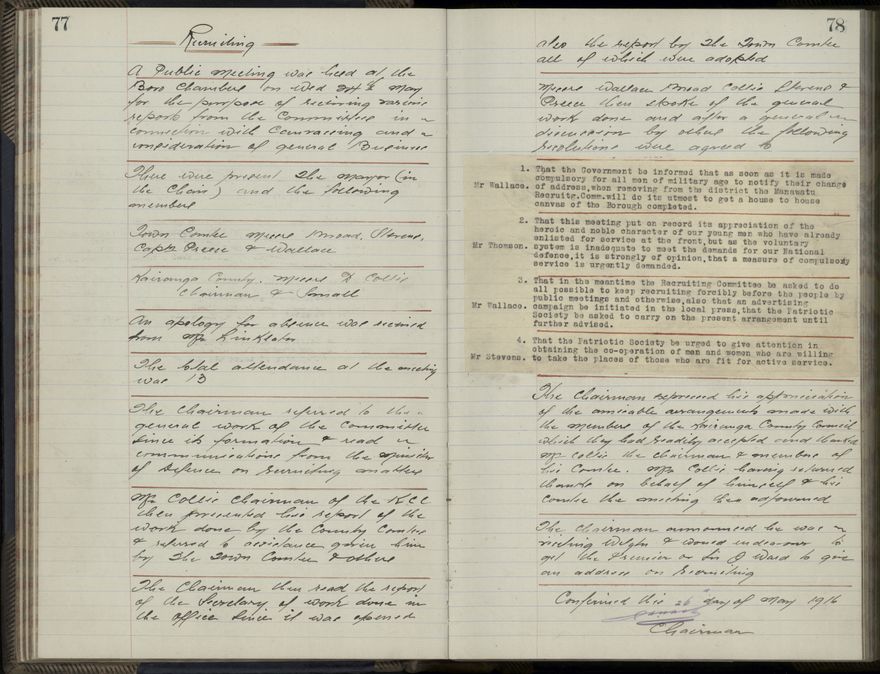 77
Recruiting
A Public Meeting was held at the
Boro Chambers on Wed 24th May
for the purpose of receiving various
reports from the Committee in
connection with Canvassing and
consideration of general Business
There were present The Mayor (in
the Chair) and the following
members
Town Comtee Messrs Mead, Stevens,
Capt Preece & Wallace
Kairanga County. Messrs D Collis
Chairman & Small
An apology for absence was received
from Mr Linklater
The total attendance at the meeting
was 13
The Chairman referred to the
general work of the Committee
since its formation & read
communications from the Minister
of Defence on recruiting matters
Mr Collis Chairman of the KCC
then presented his report of the
work done by the County Comtee
& referred to assistance given him
by The Town Comtee & others
The Chairman then read the report
of the Secretary of work done in
the office since it was opened
78
also the report by the Town Comtee
all of which were adopted
Messrs Wallace Mead Collis Stevens &
Preece then spoke of the general
work done and after a general
discussion by others the following
resolutions were agreed to
1. That the Government be informed that as soon as it is made
compulsory for all men of military age to notify their change
Mr Wallace. of address,when removing from the district the Manawatu
Recruitg.Comm.will do its utmost to get a house to house
canvas of the Borough completed.
2. That this meeting put on record its appreciation of the
heroic and noble character of our young men who have already
enlisted for service at the front,but as the voluntary
Mr Thomson. system is inadequate to meet the demands for our National
defence,it is strongly of opinion,that a measure of compulsory
service is urgently demanded.
3. That in the meantime the Recruiting Committee be asked to do
all possible to keep recruiting forcibly before the people by
public meetings and otherwise,also that an advertising
Mr Wallace. campaign be initiated in the local press,that the Patriotic
Society be asked to carry on the present arrangement until
further advised.
4. That the Patriotic Society be urged to give attention in
obtaining the co-operation of men and women who are willing
Mr Stevens. to take the places of those who are fit for active service.
The Chairman expressed his appreciation
of the amicable arrangements made with
the members of the Kairanga County Council
which they had readily accepted and thanked
Mr Collis the chairman & members of
his Comtee. Mr Collis having returned
thanks on behalf of himself & his
Comtee the meeting then adjourned
The Chairman announced he was
visiting Welgtn & would endeavour to
get the Premier or Sir J Ward to give
an address on Recruiting
Confirmed this 26 day of May 1916
Chairman